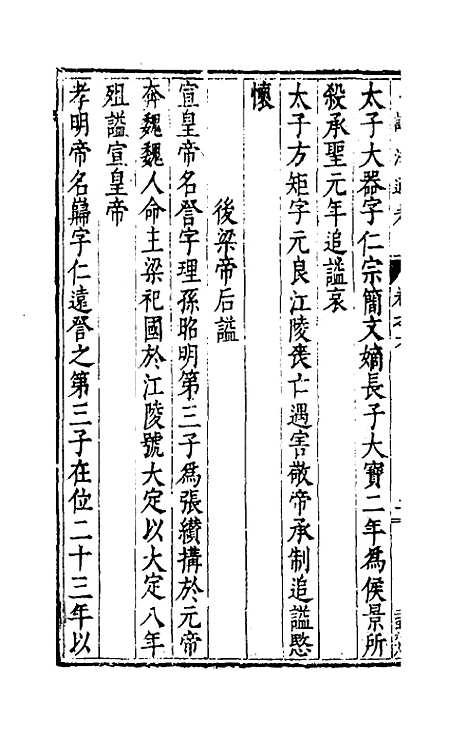 太子大器字仁宗簡文嫡長子大寶二年爲侯景所
殺承聖元年追謚哀
太子方矩字元良江陵喪亡遇害敬帝承制追謚愍
懷
後梁帝后謚
宣皇帝名詧字理孫昭明第三子爲張纘搆於元帝
奔魏魏人命主梁祀國於江陵號大定以大定八年
殂謚宣皇帝
孝明帝名巋字仁遠詧之第三子在位二十三年以